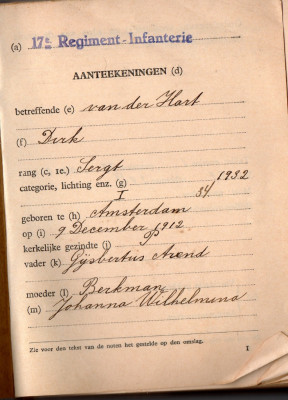 (a) 17e Regiment-Infanterie
AANTEEKENINGEN (d)
betreffende (e) van der Hart
(f) Dirk
rang (c, 1e.) Sergt
categorie, lichting enz. (g) 1932
I 34
geboren te (h) Amsterdam
op (i) 9 December 1912
kerkelijke gezindte (j)
vader (k) Gijsbertus Arend
moeder (l) Berkman
(m) Johanna Wilhelmina
Zie voor den tekst van de noten het gestelde op den omslag.
1